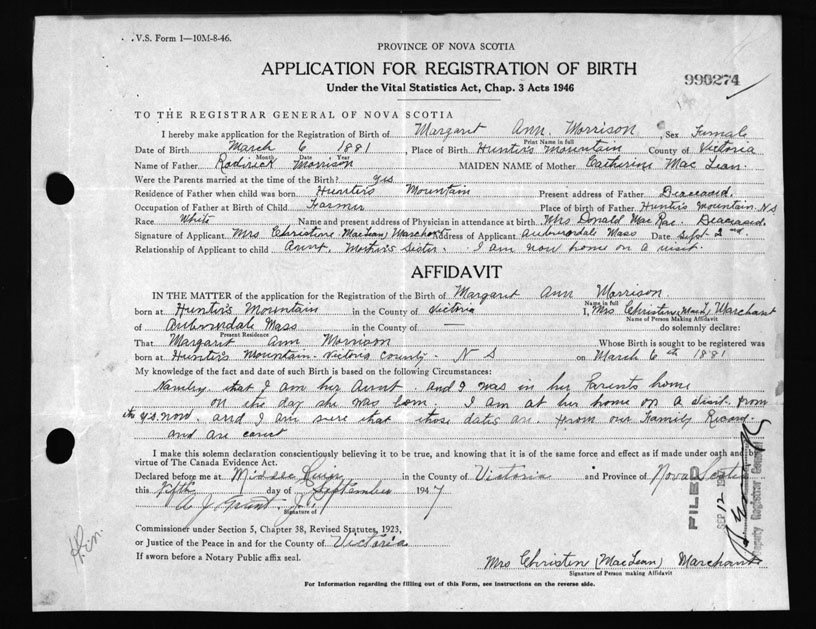 V.S. Form 1—10M-8-46.
PROVINCE OF NOVA SCOTIA
APPLICATION FOR REGISTRATION OF BIRTH
Under the Vital Statistics Act, Chap. 3 Acts 1946
990274
TO THE REGISTRAR GENERAL OF NOVA SCOTIA
I hereby make application for the Registration of Birth of Margaret Ann Morrison, Sex Female
Print Name in full
Date of Birth March 6 1881, Place of Birth Hunter's Mountain County of Victoria
Month Date Year
Name of Father Roderick Morrison MAIDEN NAME of Mother Catherine Mac Lean
Were the Parents married at the time of the Birth? yes
Residence of Father when child was born Hunters Mountain Present address of Father Deaceased.
Occupation of Father at Birth of Child Farmer Place of birth of Father Hunter's Mountain. N S
Race White Name and present address of Physician in attendance at birth Mrs Donald Mac Rae. Deaceased.
Signature of Applicant Mrs Christine MacLean) Marchant Address of Applicant Auburndale Mass Date Sept 2nd.
Relationship of Applicant to child Aunt. Mother's Sister. I am now home on a visit.
AFFIDAVIT
IN THE MATTER of the application for the Registration of Birth of Margaret Ann Morrison
Name in full
born at Hunter's Mountain in the County of Victoria I, Mrs. Christine, MacL, Marchant
Name of Person Making Affidavit
of Auburndale Mass in the County of — do solemnly declare:
Present Residence
That Margaret Ann Morrison Whose Birth is sought to be registered was
born at Hunter's Mountain. Victoria County. N S on March 6th 1881
My knowledge of the fact and date of such Birth is based on the following Circumstances:
Namley that I am her Aunt. and I was in her Parents home
on the day she was born. I am at her home on a visit. from
the U.S. now. and I am sure that those dates are from our Family Record.
and are corect
I make this solemn declaration conscientiously believing it to be true, and knowing that it is of the same force and effect as if made under oath and by
virtue of The Canada Evidence Act.
Declared before me at Middle River in the County of Victoria and Province of Nova Scotia
this Fifth day of September 1947
A J Grant. J.P.
Signature of
Commissioner under Section 5, Chapter 38, Revised Statutes, 1923,
or Justice of the Peace in and for the County of Victoria
If sworn before a Notary Public affix seal.
FILED
SEP 12
Deputy Registrar General
Mrs Christen (MacLean) Marchant
Signature of Person making Affidavit
For Information regarding the filling out of this Form, see instructions on the reverse side.